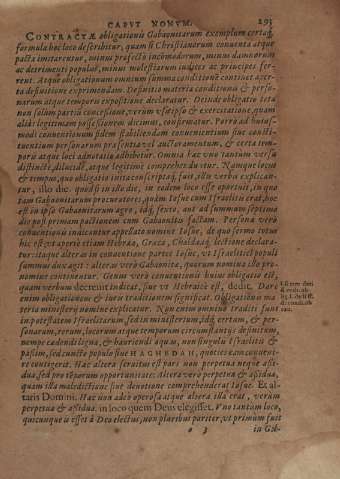 CAPVT NONVM. 293
CONTRACTÆ obligationis Gabaonitarum exemplum certaq́;
formula hoc loco describitur, quam si Christianorum conuenta atque
pacta imitarentur, minus profectò incommodorum, minus damnorum
ac detrimenti populos, minus molestiarum iudices ac principes fer-
rent. Atque obligationum omnium summa conditione continet & certa
definitione exprimendam. Definitio materia conditionis & perso-
narum atque temporum expositione declaratur. Deinde obligatio tota
non solum partiū concessione, verùm vsu ipso & exercitatione, quam
alibi legitimam possessionem diximus, confirmatur. Porrò ad huius-
modi conuentionum fidem stabiliendam conuenientium siue consti-
tuentium personarum præsentia vel auctoramentum, & certa tem-
poris atque loci adnotatio adhibetur. Omnia hæc vno tantùm versu
distinctè, dilucidè, atque legitimè comprehensa vides. Namque locus
& tempus, quo obligatio inita conscriptaq́; fuit, istis verbis explican-
tur, illo die. quòd si in illo die, in eodem loco esse oportuit, in quo
tam Gabaonitarum procuratores, quàm Iosue cum Israelitis erat, hoc
est in ipso Gabaonitarum agro, idq́; tertio, aut ad summum septimo
die post primam pactionem cum Gabaonitis factam. Persona verò
conuentionis indicantur appellato nomine Iosue, de quo sermo totus
hic est, vt apertè etiam Hebræa, Græca, Chaldæaq́; lectione declara-
tur: itaque alteras in conuentione partes Iosue, vt Israelitici populi
summus dux agit: alteras verò Gabaonitæ, quorum nomina illo pro-
nomine continentur. Genus verò conuentionis huius obligatio est,
quam verbum decreuit indicat, siue vt Hebraicè est, dedit. Dare
enim obligationem & iuris traditionem significat. Obligationis ma-
teria ministerij nomine explicatur. Non enim omnino traditi sunt
in potestatem Israelitarum, sed in ministerium, idq́; certum, & per-
sonarum, rerum, locorum atque temporum circumstantijs definitum,
nempe cædendi ligna, & hauriendi aquas, non singulis Israelitis &
passim, sed cuncto populo siue HAGHEDAH, quoties eam conueni-
re contigerit. Hæc altera seruitus est pars non perpetua neque assi-
dua, sed pro temporum opportunitate: Altera verò perpetua & assidua,
quam illa maledictione siue deuotione comprehenderat Iosue. Et al-
taris Domini. Hæc non adeo operosa atque altera illa erat, verùm
perpetua & assidua. in locum quem Deus elegisset. Vno tantùm loco,
quicunque is esset à Deo electus, non pluribus pariter, vt primùm fuit
in Gal-